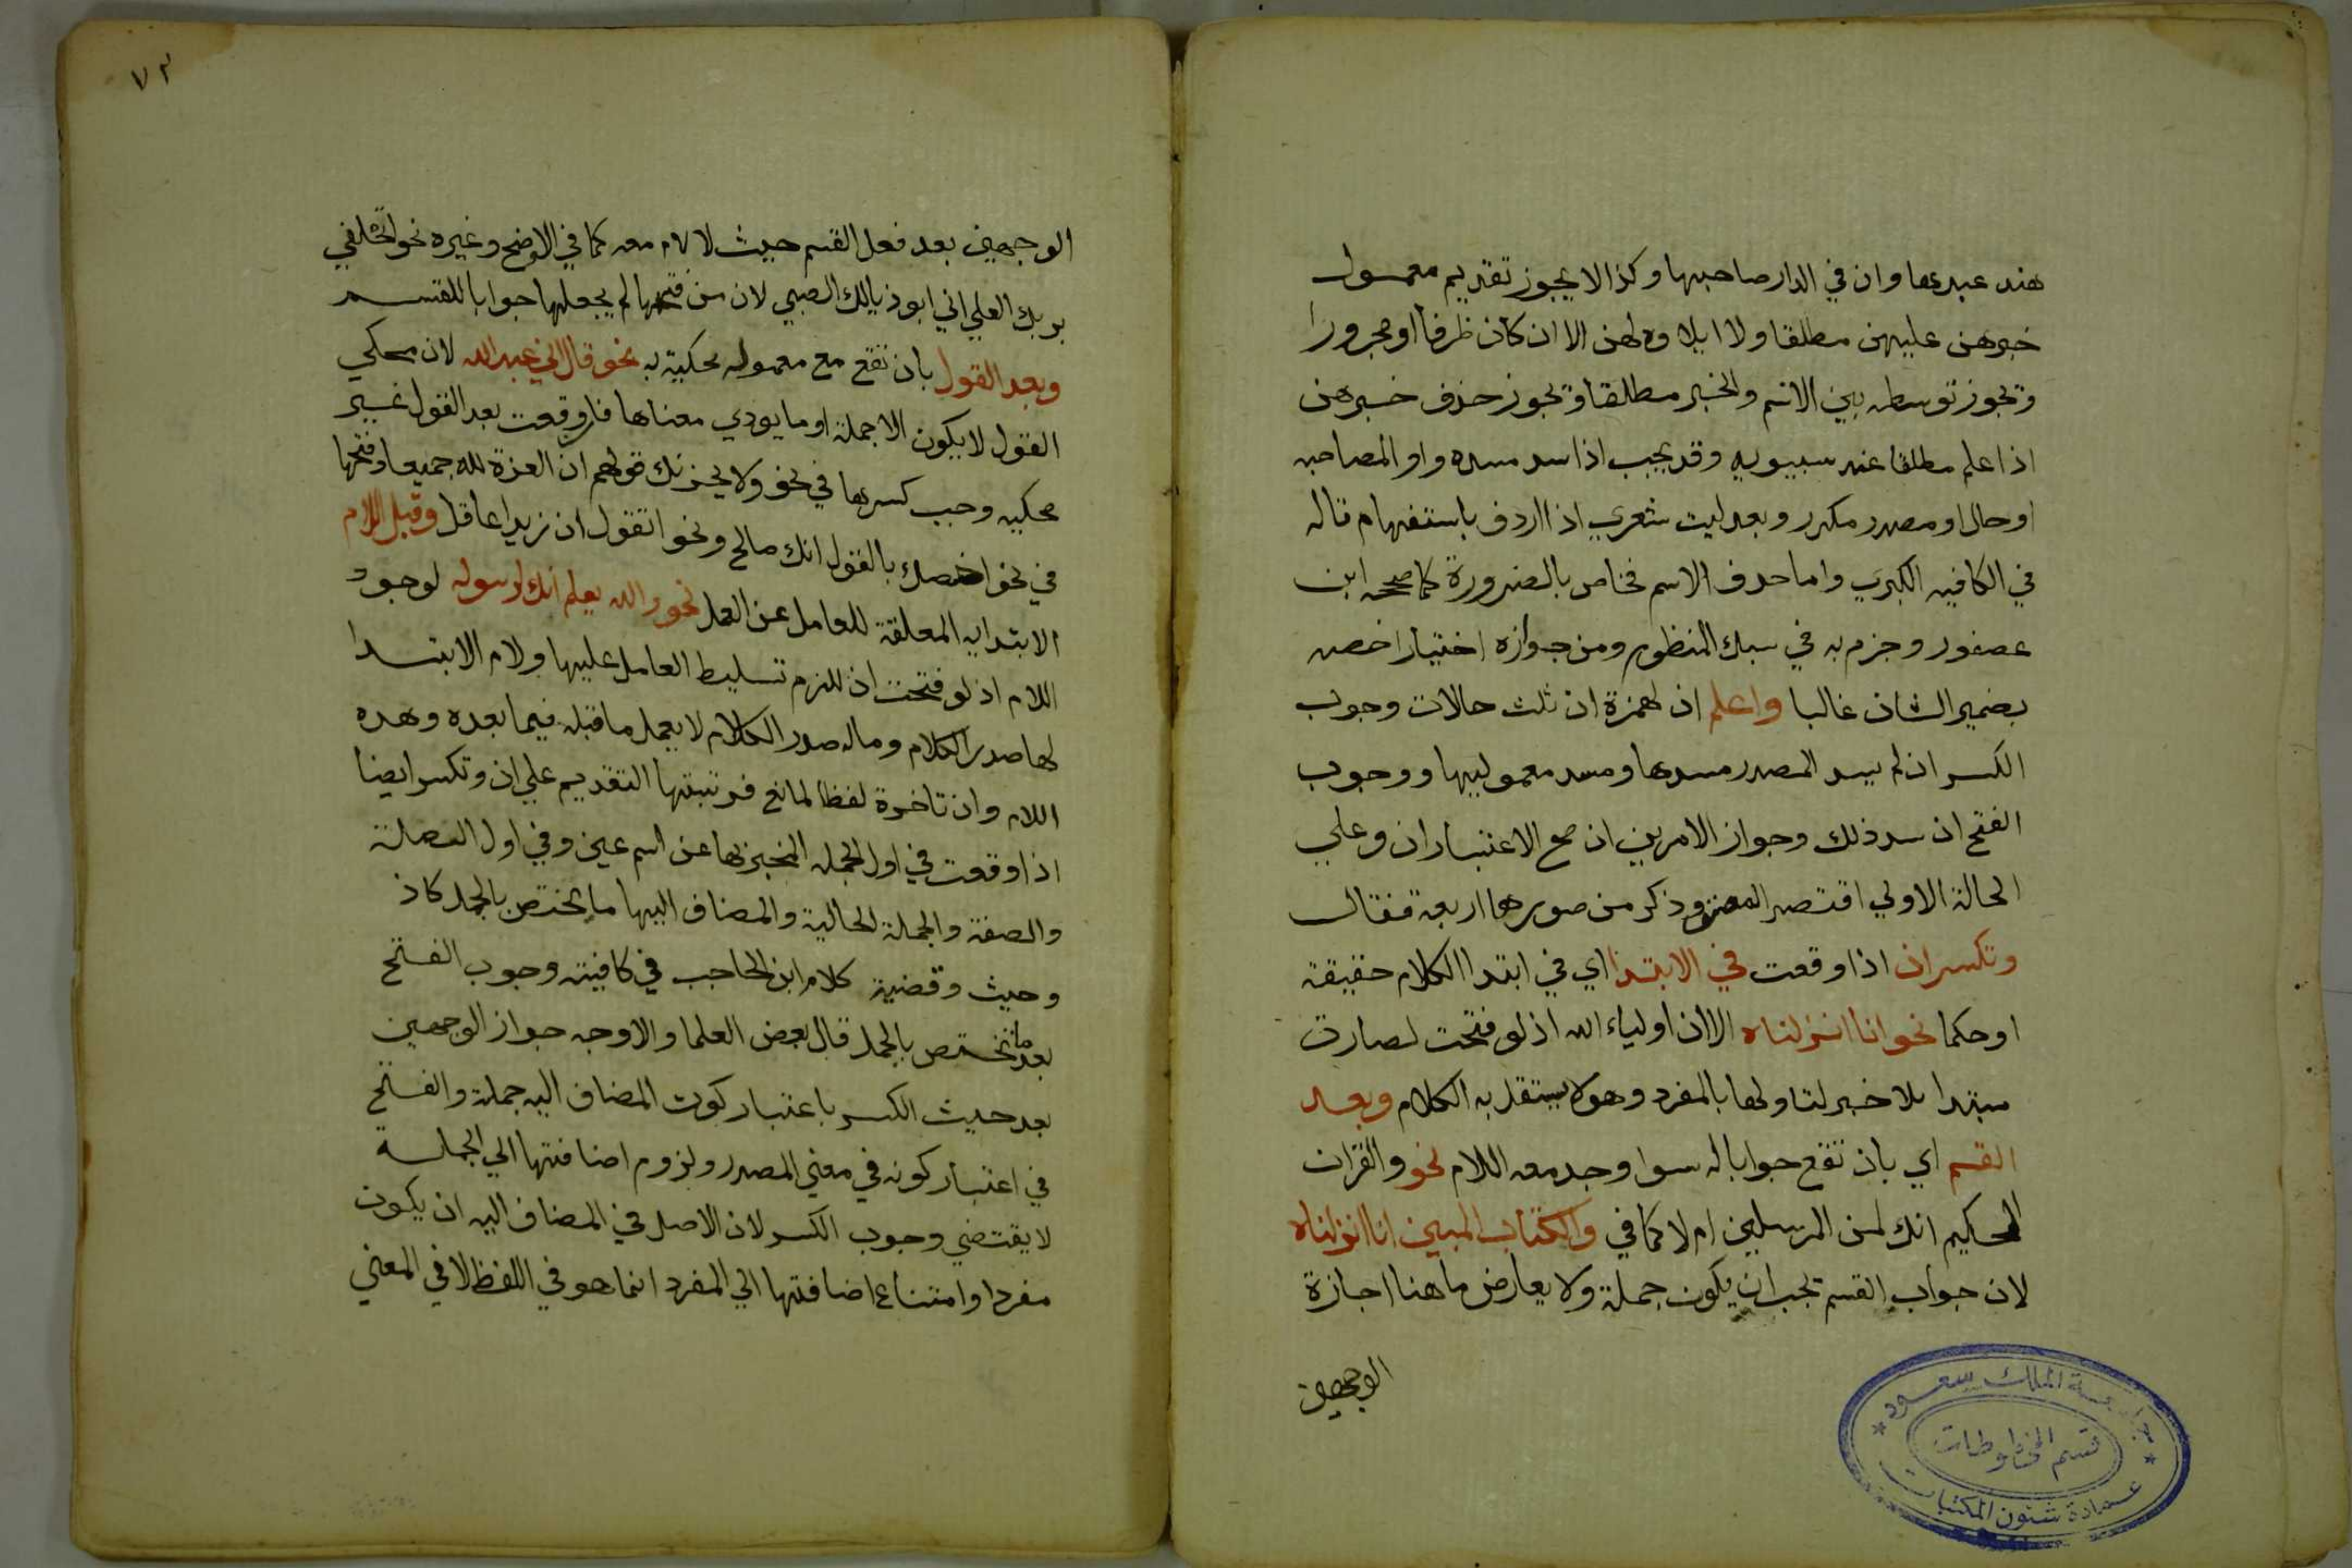 هند عبدها وان في الدار صاحبها وكذا لا يجوز تقديم معمول
خبرهن عليهن مطلقا ولا ايلاوه لهن الا ان كان ظرفا او مجرورا
وتجوز توسطه بين الاسم والخبر مطلقا وتجوز حذف خبرهن
اذا علم مطلقا عند سيبويه وقد يجب اذا سد مسده واو المصاحبه
او حال او مصدر مكرر وبعد ليت شعري اذا اردف باستفهام قاله
في الكافيه الكبرى واما حذف الاسم فخاص بالضرورة كما صححه ابن
عصفور وجزم به في سبك المنظوم ومن جوازه اختيارا خصه
بضمير الشان غالبا واعلم ان لهمزة ان ثلث حالات وجوب
الكسر ان لم يسد المصدر مسدها ومسد معموليها ووجوب
الفتح ان سد ذلك وجواز الامرين ان صح الاعتباران وعلي
الحالة الاولي اقتصر المص وذكر من صورها اربعة فقال
وتكسر ان اذا وقعت في الابتدا اي في ابتدا الكلام حقيقة
او حكما نحو انا انزلناه الا ان اولياء الله اذ لو فتحت لصارت
مبتدا بلا خبر لتاولها بالمفرد وهو لا يستقل به الكلام وبعد
القسم اي بان تقع جوابا له سوا وجد معه اللام نحو والقران
الحكيم انك لمن المرسلين ام لا كما في والكتاب المبين انا انزلناه
لان جواب القسم يجب ان يكون جملة ولا يعارض ما هنا اجازة
الوجهين
جامعة الملك سعود
قسم المخطوطات
عمادة شئون المكتبات
٧٣
الوجهين بعد فعل القسم حيث لا لام معه كما في الاوضح وغيره نحو اتحلفي
بربك العلي اني ابو ذيالك الصبي لان من فتحها لم يجعلها جوابا للقسم
وبعد القول بان تقع مع معموله محكية به نحو قال اني عبد الله لان محكي
القول لا يكون الا جملة او ما يودي معناها فان وقعت بعد القول غير
محكيه وجب كسرها في نحو ولا يحزنك قولهم ان العزة لله جميعا وفتحها
في نحو اخصك بالقول انك صالح ونحو اتقول ان زيدا عاقل وقبل اللام
الابتدايه المعلقة للعامل عن العمل نحو والله يعلم انك لرسوله لوجود
اللام اذ لو فتحت ان للزم تسليط العامل عليها ولام الابتدا
لها صدر الكلام وماله صدر الكلام لا يعمل ما قبله فيما بعده وهده
اللام وان تاخرة لفظا لمانع فرتبتها التقديم علي ان وتكسر ايضا
اذا وقعت في اول الجمله المخبر بها عن اسم عين وفي اول الصلة
والصفة والجملة الحالية والمضاف اليها ما يختص بالجمل كاذ
وحيث وقضية كلام ابن الحاجب في كافيته وجوب الفتح
بعد ما يختص بالجمل قال بعض العلما والاوجه جواز الوجهين
بعد حيث الكسر باعتبار كون المضاف اليه جملة والفتح
في اعتبار كونه في معني المصدر ولزوم اضافتها الي الجملة
لا يقتضي وجوب الكسر لان الاصل في المضاف اليه ان يكون
مفردا وامتناع اضافتها الي المفرد انما هو في اللفظ لا في المعني